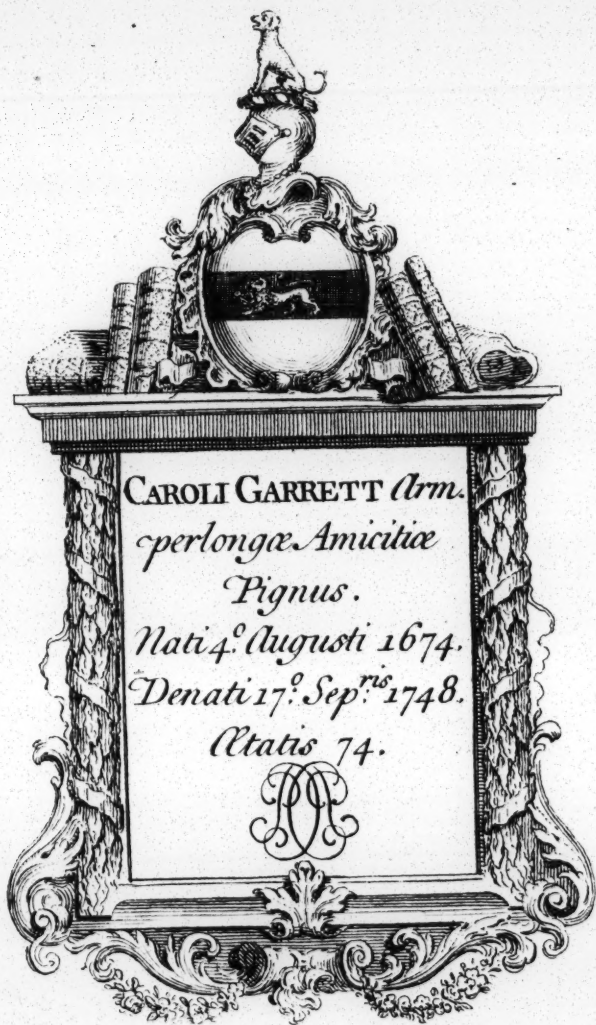 CAROLI GARRETT Arm.
perlongæ Amicitiæ
Pignus.
Nati 4.º Augusti 1674.
Denati 17.º Sep.ʳⁱˢ 1748.
Ætatis 74.